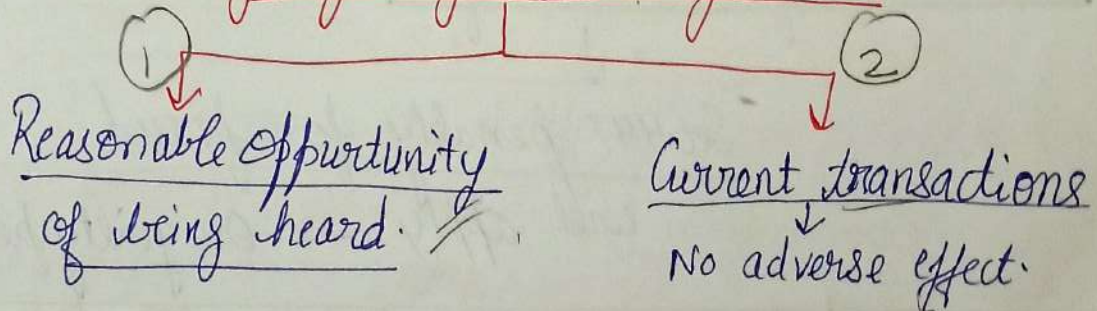 1
2
Reasonable oppurtunity
of being heard.
Current transactions
No adverse effect.